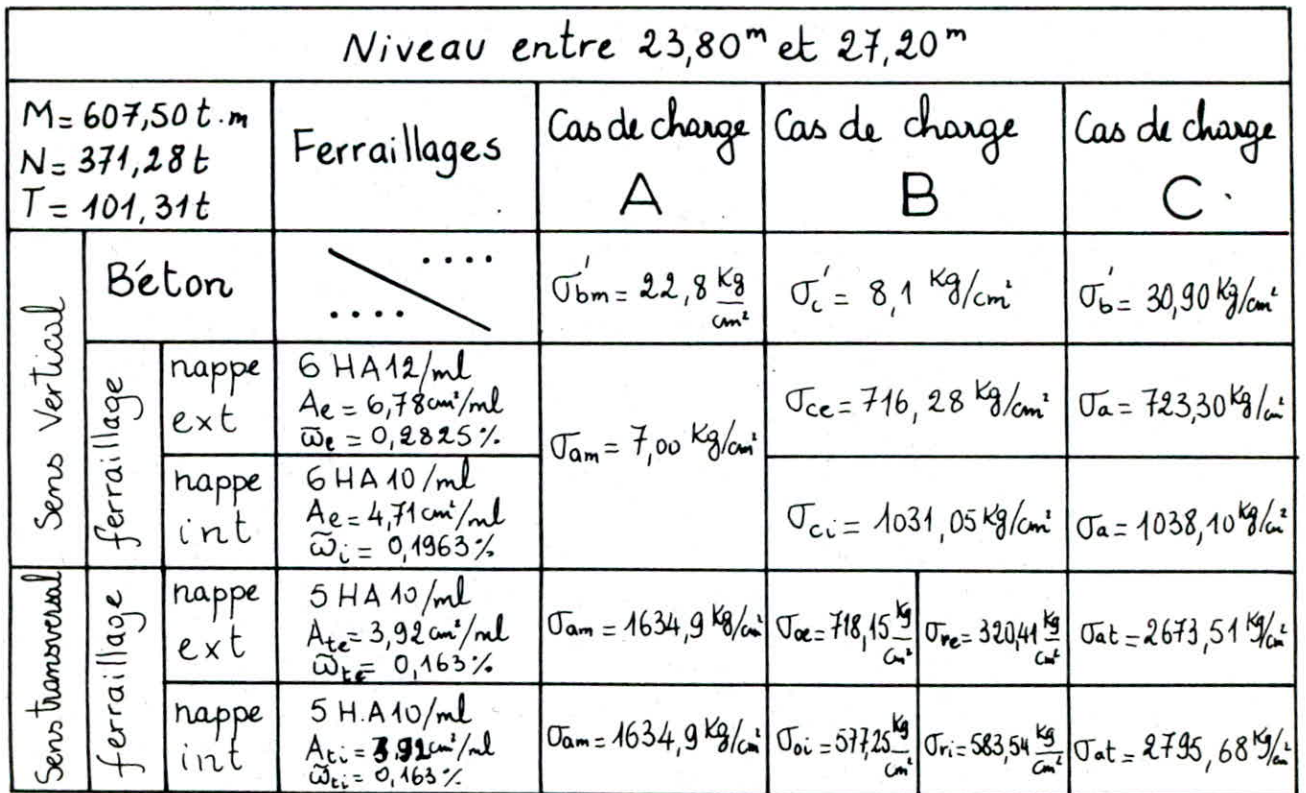 Niveau entre 23,80ᵐ et 27,20ᵐ
M= 607,50 t.m
N= 371,28t
T= 101,31t
Ferraillages
Cas de charge
A
Cas de charge
B
Cas de charge
C
Sens Vertical
Béton
σ'bm = 22,8 Kg/cm²
σ'c = 8,1 Kg/cm²
σ'b = 30,90 Kg/cm²
ferraillage
nappe
ext
6 HA12/ml
Ae = 6,78 cm²/ml
ω̄e = 0,2825%
σam = 7,00 Kg/cm²
σce = 716,28 Kg/cm²
σa = 723,30 Kg/cm²
nappe
int
6 HA 10/ml
Ae = 4,71 cm²/ml
ω̄i = 0,1963%
σci = 1031,05 Kg/cm²
σa = 1038,10 Kg/cm²
Sens transversal
ferraillage
nappe
ext
5 HA 10/ml
Ate = 3,92 cm²/ml
ω̄te = 0,163%
σam = 1634,9 Kg/cm²
σoe = 718,15 Kg/cm²
σre = 320,41 Kg/cm²
σat = 2673,51 Kg/cm²
nappe
int
5 H.A10/ml
Ati = 3,92 cm²/ml
ω̄ti = 0,163%
σam = 1634,9 Kg/cm²
σoi = 577,25 Kg/cm²
σri = 583,54 Kg/cm²
σat = 2795,68 Kg/cm²